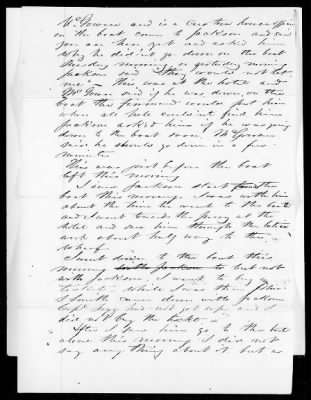 McGowen and is a Custom house officer
on the boat came to Jackson and said
you are here yet and asked him
why he didnt go down on the boat
Tuesday morning or yesterday morning
Jackson said they would not let
me - this was at the hotel and
McGowen said if he was down on the
boat the fireman would put him
when all hell couldnt find him
Jackson asked him if he was going
down to the boat soon McGowen
said he should go down in a few
minutes
This was just before the boat
left this morning
I saw Jackson start the
boat this morning I was with him
about the time he went to the boat
and I went towards the ferry at the
hotel and saw him
about half way to the
wharf.
I went down to the boat this
morning to but not
with Jackson I went to buy a
ticket while I was there John
Smith came down with Jackson
Capt was not up and I
did not buy the ticket -
After I saw him go to the boat
alone this morning I did not
say anything about it but as